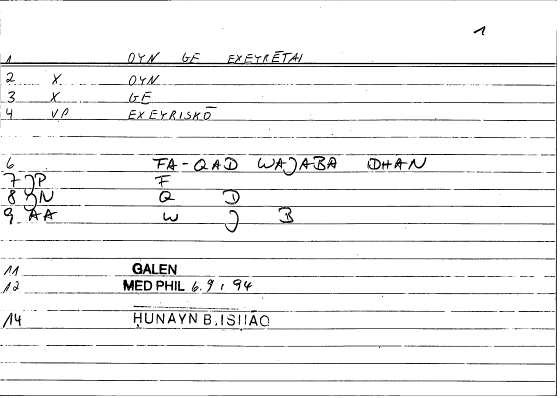 1
1 OYN GE EXEYRĒTAI
2 X OYN
3 X GE
4 VP EXEYRISKŌ
6 FA-QAD WAJABA DHAN
7 JP F
8 JN Q D
9 AA W J B
11 GALEN
12 MED PHIL 6.9, 94
14 ḤUNAYN B. ISḤĀQ